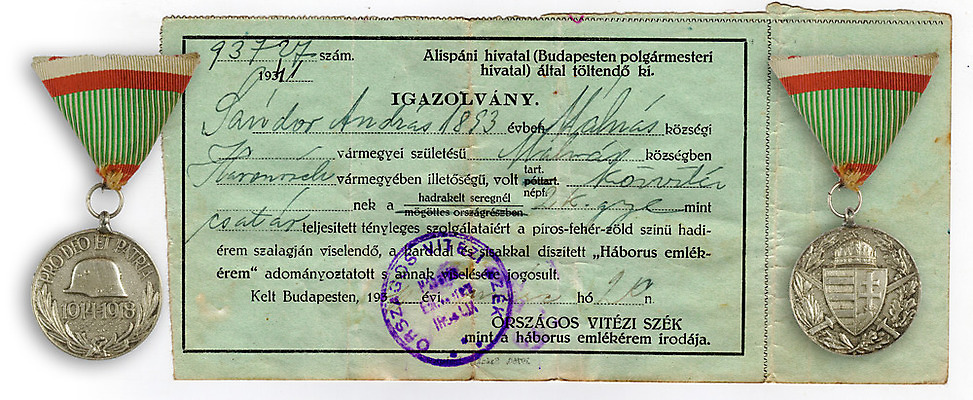 93727 szám.
1941
Alispáni hivatal (Budapesten polgármesteri
hivatal) által töltendő ki.
IGAZOLVÁNY.
Sándor András 1893 évben Málnás községi
vármegyei születésű Málnás községben
vármegyében illetőségű, volt tart. póttart. népf.
nek a hadrakelt seregnél mögöttes országrészben mint
teljesített tényleges szolgálataiért a piros-fehér-zöld szinü hadi-
érem szalagján viselendő, a karddal és sisakkal díszített „Háborus emlék-
érem" adományoztatott s annak viselésére jogosult.
Kelt Budapesten, 193 évi hó n.
ORSZÁGOS VITÉZI SZÉK
mint a háborus emlékérem irodája.
ORSZÁGOS VITÉZI SZÉK
PRO DEO ET PATRIA
1914-1918